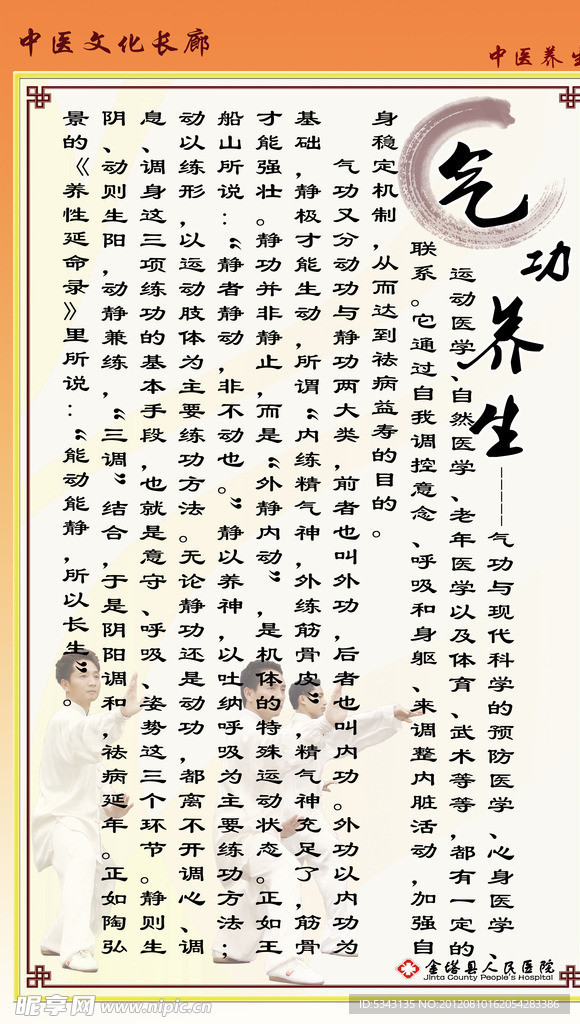 中医文化长廊
中医养生
气功养生
------气功与现代科学的预防医学、心身医学、
运动医学、自然医学、老年医学以及体育、武术等等，都有一定的
联系。它通过自我调控意念、呼吸和身躯、来调整内脏活动，加强自
身稳定机制，从而达到祛病益寿的目的。
气功又分动功与静功两大类，前者也叫外功，后者也叫内功。外功以内功为
基础，静极才能生动，所谓“内练精气神，外练筋骨皮”，精气神充足了，筋骨
才能强壮。静功并非静止，而是“外静内动”，是机体的特殊运动状态。正如王
船山所说：“静者静动，非不动也。”静以养神，以吐纳呼吸为主要练功方法；
动以练形，以运动肢体为主要练功方法。无论静功还是动功，都离不开调心、调
息、调身这三项练功的基本手段，也就是意守、呼吸、姿势这三个环节。静则生
阴、动则生阳，动静兼练，“三调”结合，于是阴阳调和，祛病延年。正如陶弘
景的《养性延命录》里所说：“能动能静，所以长生”。
金塔县人民医院
Jinta County People's Hospital
昵享网 www.nipic.cn
ID:5343135 NO:20120810162054283386